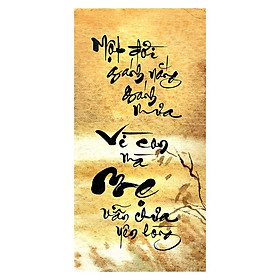 Một đời
gánh nắng
gánh
mưa
Vì con
mà
Mẹ
vẫn chưa
yên lòng